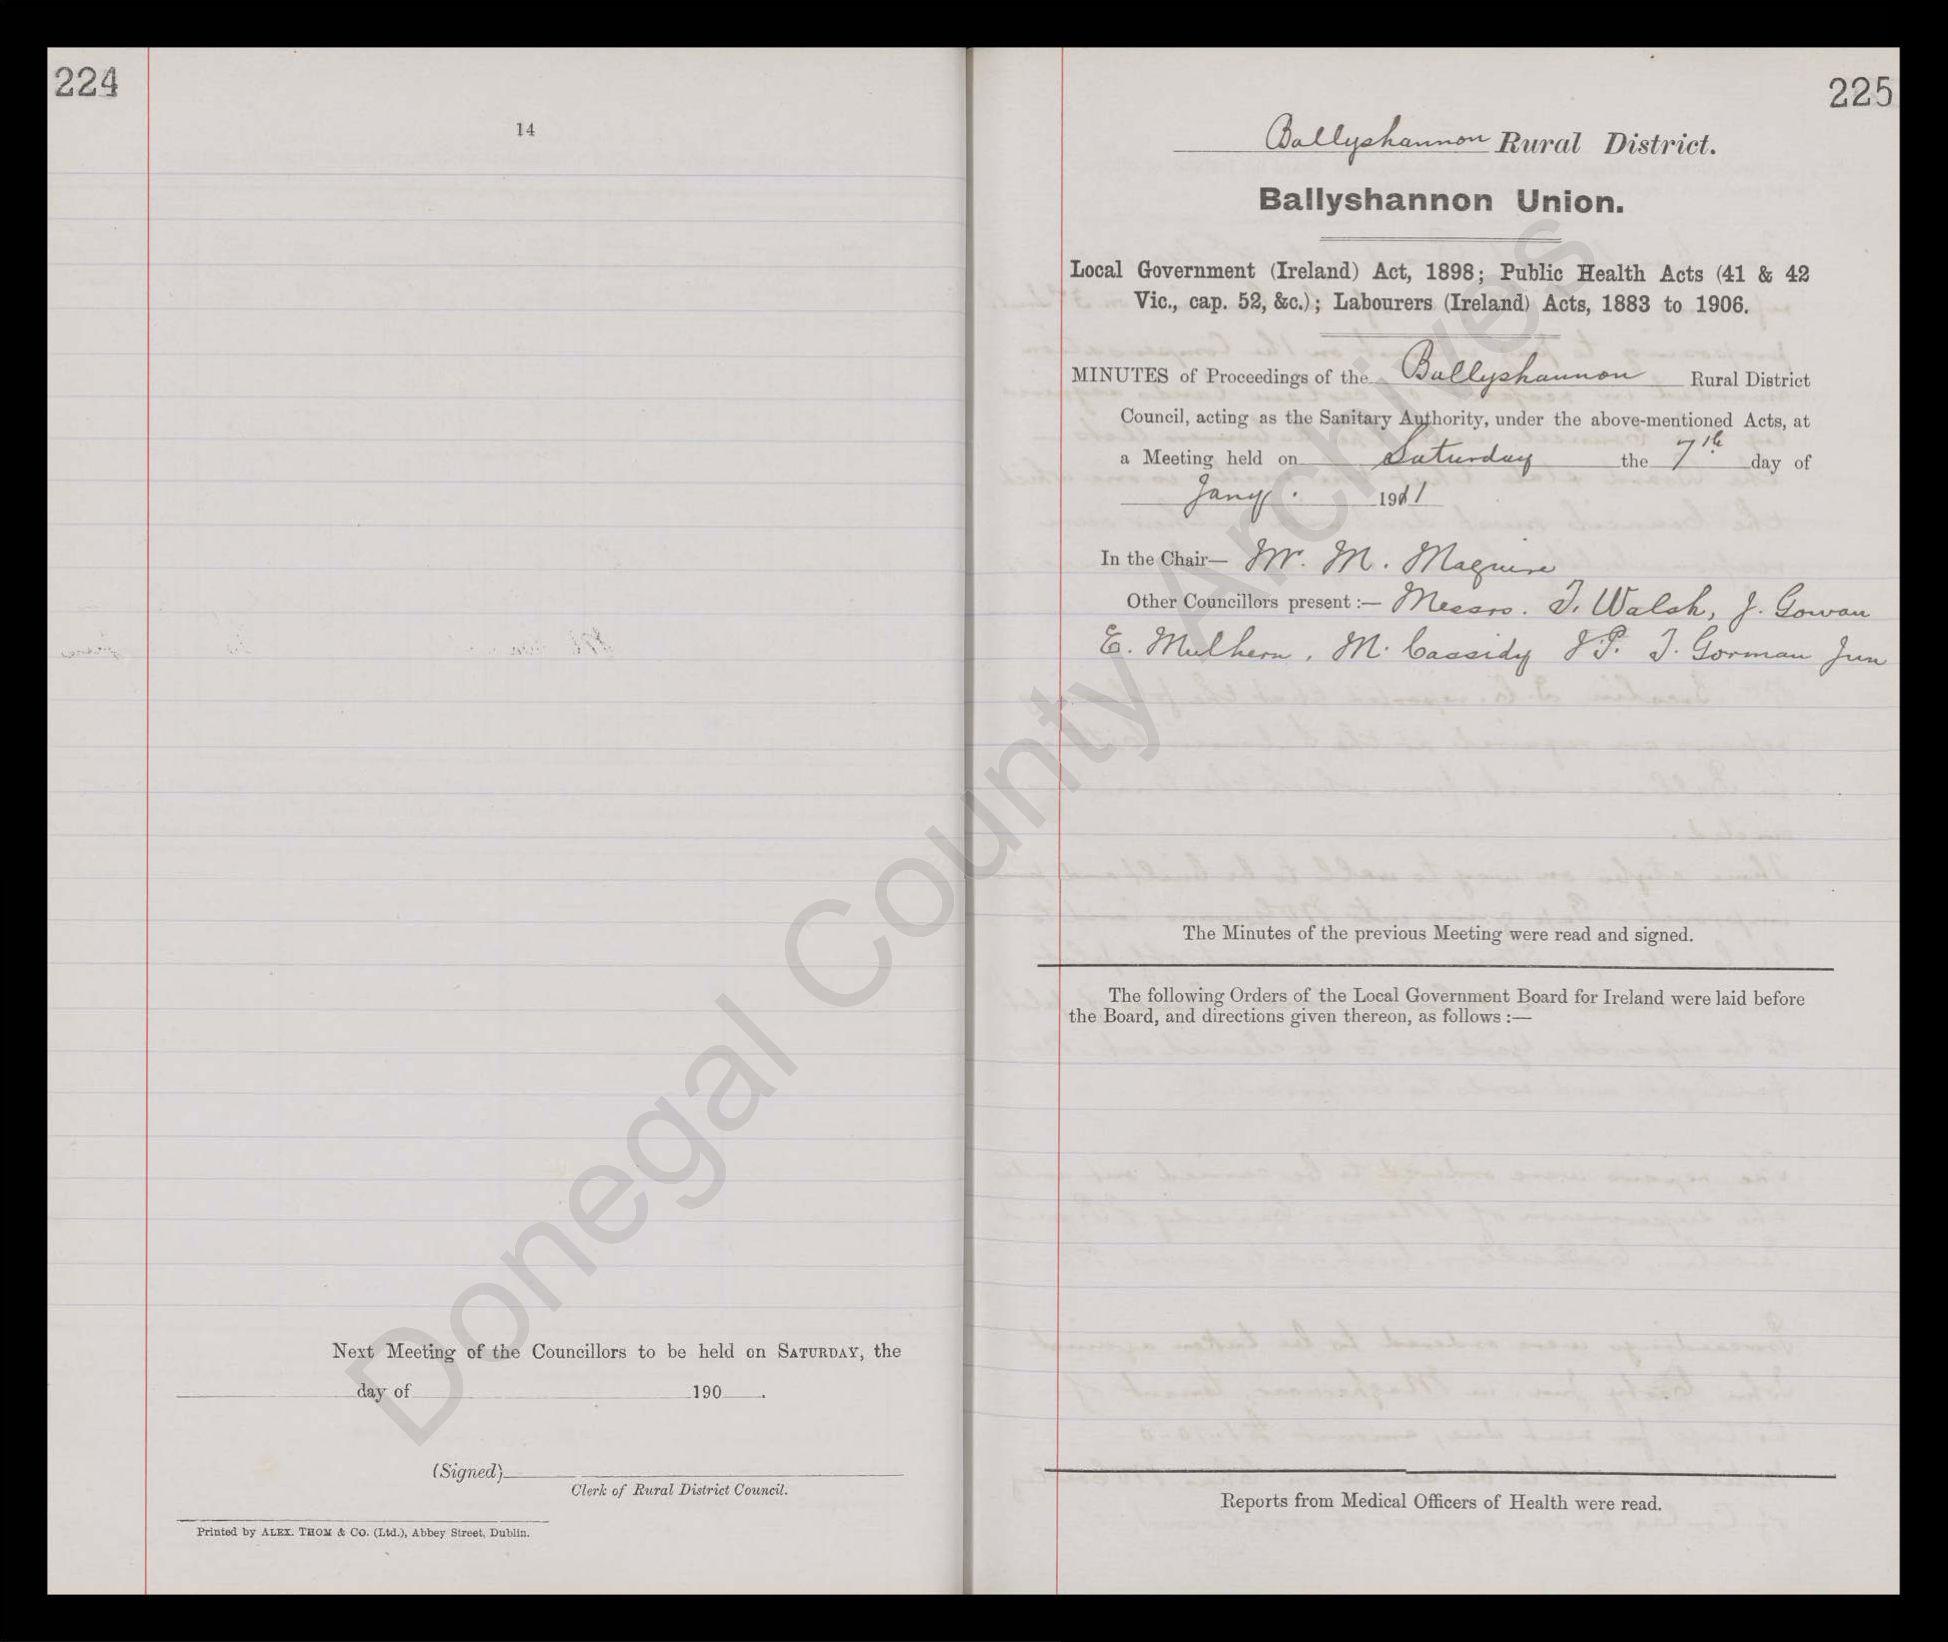 224
14
Next Meeting of the Councillors to be held on SATURDAY, the
day of 190 .
(Signed)
Clerk of Rural District Council.
Printed by ALEX. THOM & CO. (Ltd.), Abbey Street, Dublin.
225
Ballyshannon Rural District.
Ballyshannon Union.
Local Government (Ireland) Act, 1898; Public Health Acts (41 & 42
Vic., cap. 52, &c.); Labourers (Ireland) Acts, 1883 to 1906.
MINUTES of Proceedings of the Ballyshannon Rural District
Council, acting as the Sanitary Authority, under the above-mentioned Acts, at
a Meeting held on Saturday the 7th day of
Jany. 1911
In the Chair— Mr. M. Maguire
Other Councillors present :— Messrs. T. Walsh, J. Gowan
E. Mulhern, M. Cassidy J.P. T. Gorman Jun
The Minutes of the previous Meeting were read and signed.
The following Orders of the Local Government Board for Ireland were laid before
the Board, and directions given thereon, as follows :—
Reports from Medical Officers of Health were read.
Donegal County Archives